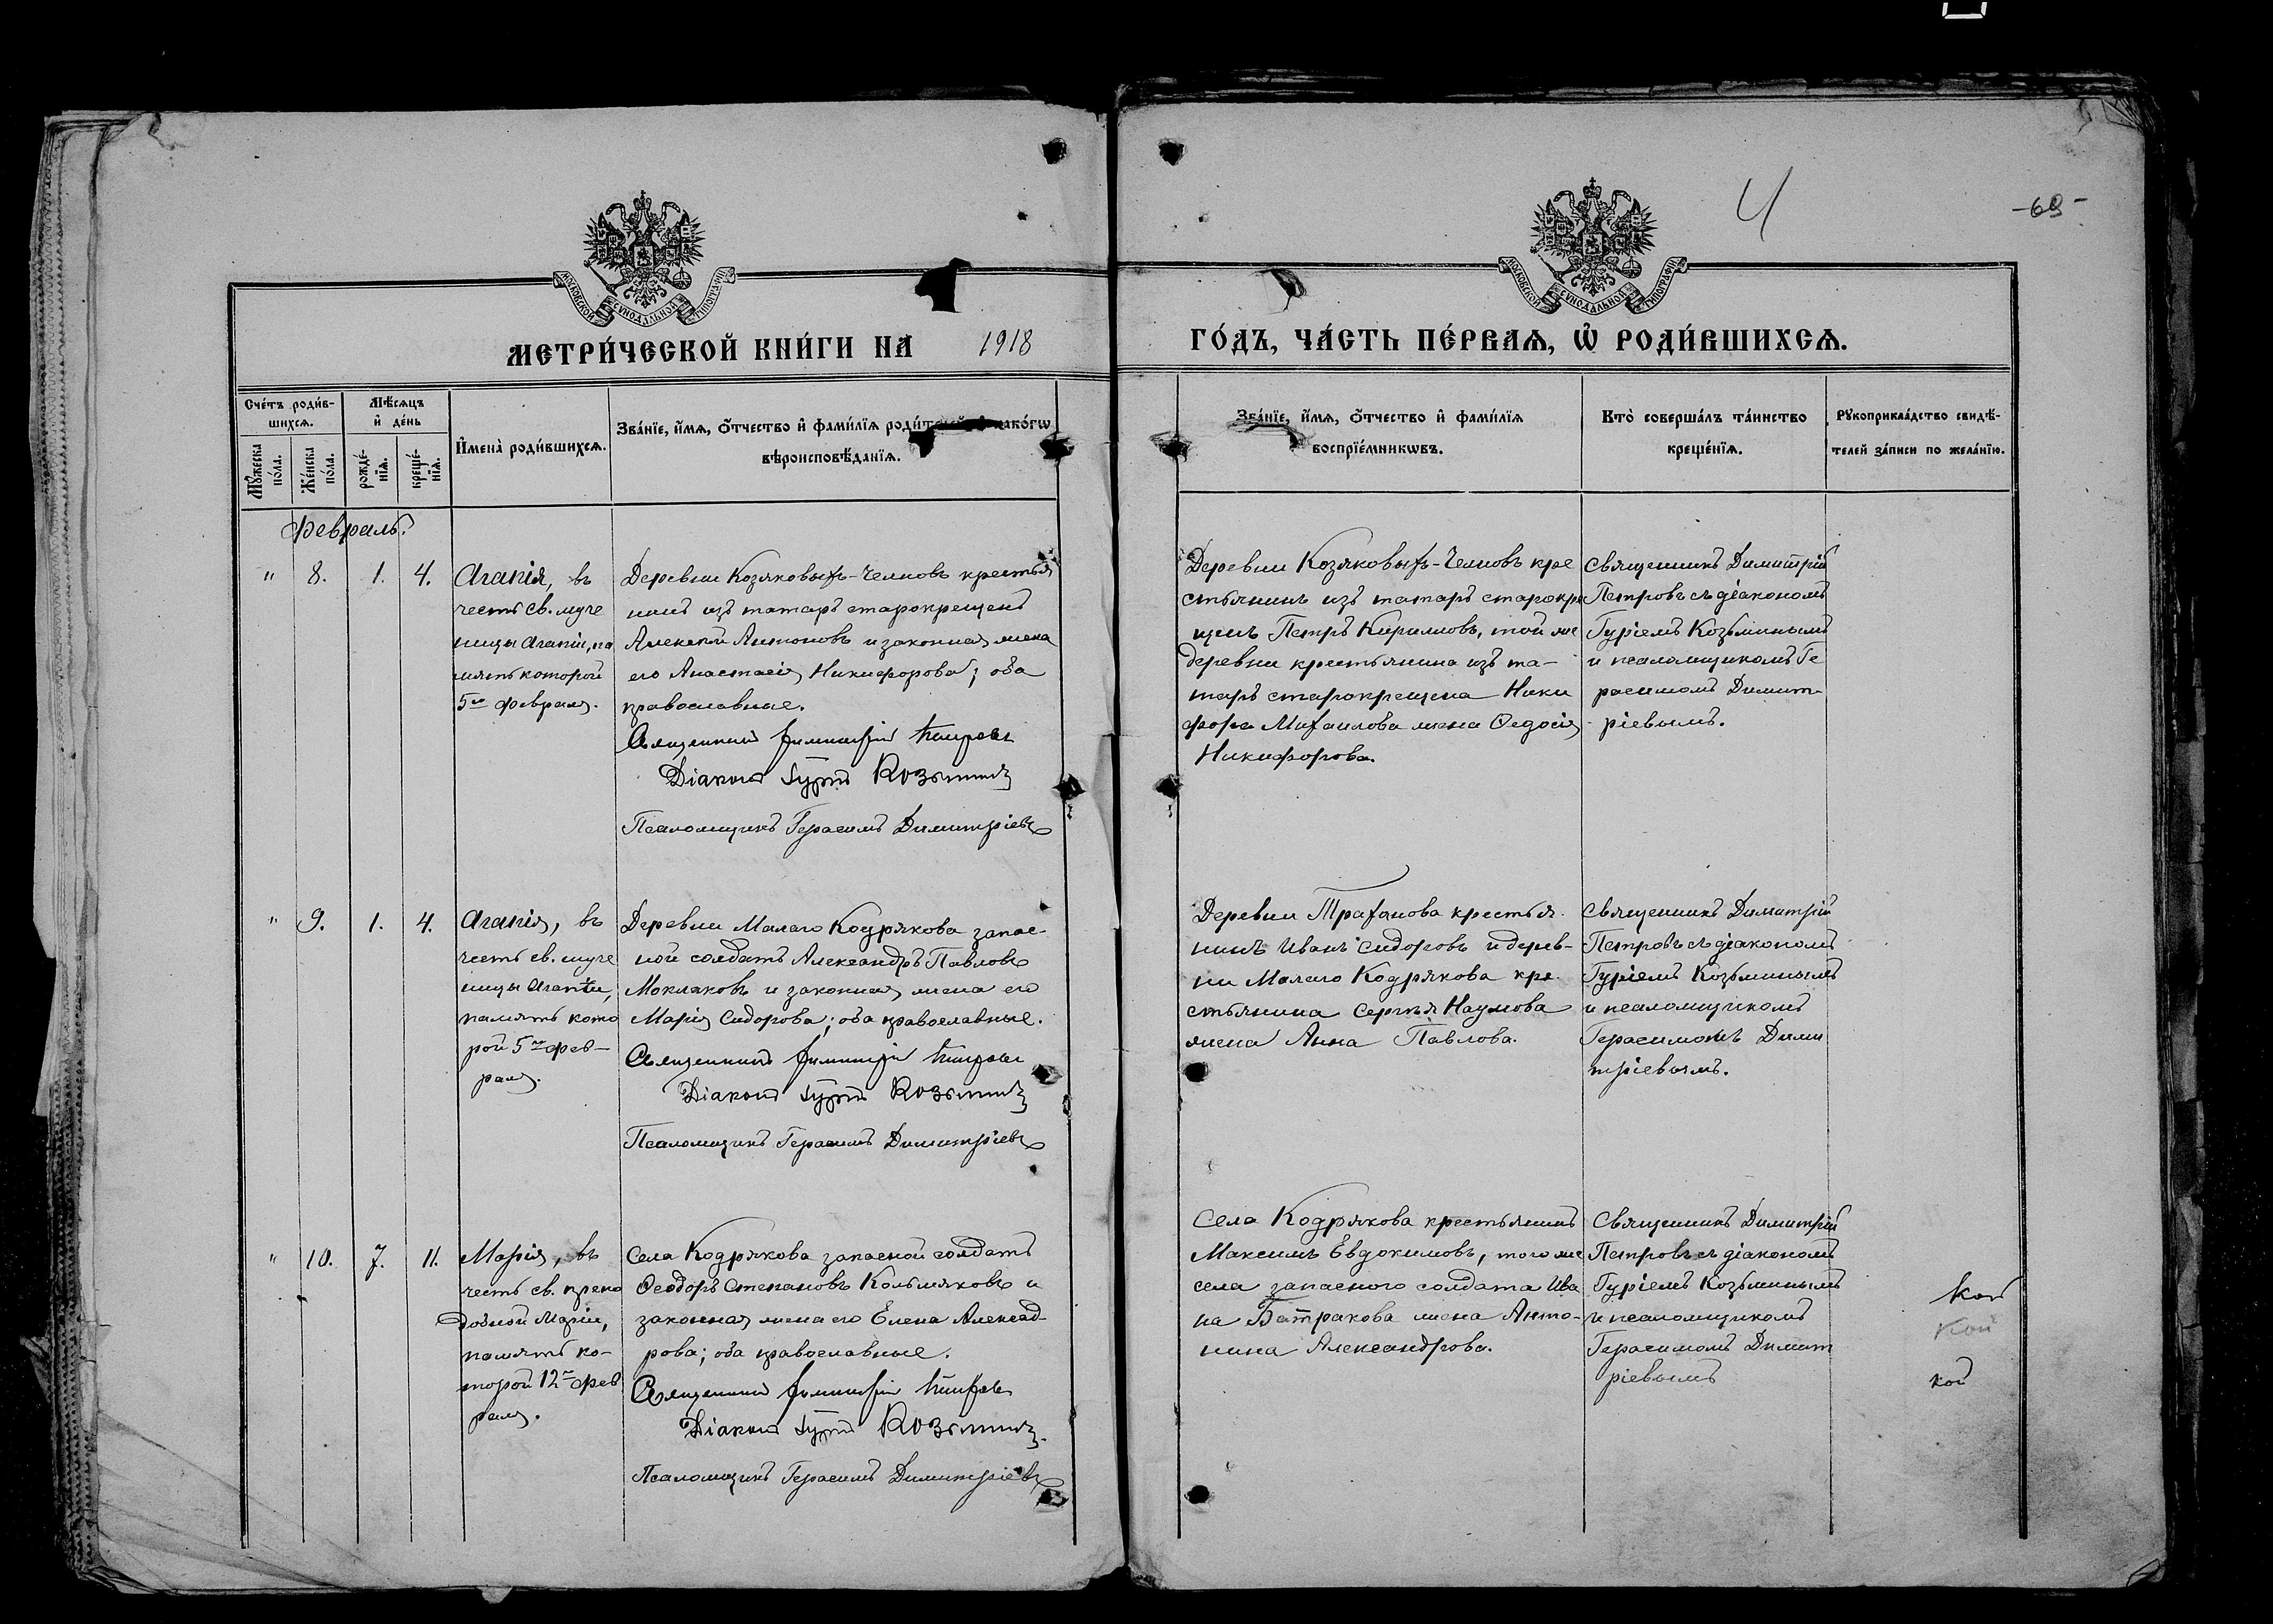 4
-69-
МОСКОВСКОЙ СѴНОДАЛЬНОЙ ТИПОГРАФІИ
МОСКОВСКОЙ СѴНОДАЛЬНОЙ ТИПОГРАФІИ
МЕТРИ́ЧЕСКОЙ КНИ́ГИ НА 1918
ГО́ДЪ, ЧА́СТЬ ПЕ́РВАѦ, Ѽ РОДИ́ВШИХСѦ.
Сче́тъ роди́в-
шихсѧ.
Мꙋ́жеска по́ла.
Же́нска по́ла.
Мѣ́сѧцъ
и҆ де́нь
рожде́-
нїѧ.
креще́-
нїѧ.
И҆мена̀ роди́вшихсѧ.
Зва́нїе, и҆́мѧ, ѻ҆́тчество и҆ фами́лїѧ роди́телей како́гѡ
вѣроисповѣ́данїѧ.
Зва́нїе, и҆́мѧ, ѻ҆́тчество и҆ фами́лїѧ
воспрїе́мникѡвъ.
Кто̀ соверша́лъ та́инство
креще́нїѧ.
Рꙋкоприкла́дство свидѣ́-
телей за́писи по жела́нїю.
Февраль.
" 8. 1. 4.
Агапія, въ
честь св. муче
ницы Агапіи, па
мять которой
5го февраля.
Деревни Козяковыхъ-Челновъ крестья
нинъ изъ татаръ старокрещенъ
Алексѣй Антоновъ и законная жена
его Анастасія Никифорова; оба
православные.
Священникъ Димитрій Петровъ
Діаконъ Гурій Козьминъ
Псаломщикъ Герасимъ Димитріевъ
Деревни Козяковыхъ-Челновъ кре
стьянинъ изъ татаръ старокре
щенъ Петръ Кирилловъ, той же
деревни крестьянина изъ та-
таръ старокрещена Ники
фора Михаилова жена Ѳедосія
Никифорова.
Священникъ Димитрій
Петровъ съ діакономъ
Гуріемъ Козьминымъ
и псаломщикомъ Ге
расимомъ Димит-
ріевымъ.
" 9. 1. 4.
Агапія, въ
честь св. муче
ницы Агапіи,
память кото
рой 5го фев-
раля.
Деревни Малаго Кодрякова запас-
ной солдатъ Александръ Павловъ
Моклаковъ и законная жена его
Марія Сидорова; оба православные.
Священникъ Димитрій Петровъ
Діаконъ Гурій Козьминъ
Псаломщикъ Герасимъ Димитріевъ
Деревни Траханова крестья-
нинъ Иванъ Сидоровъ и дерев-
ни Малаго Кодрякова кре-
стьянина Сергѣя Наумова
жена Анна Павлова.
Священникъ Димитрій
Петровъ съ діакономъ
Гуріемъ Козьминымъ
и псаломщикомъ
Герасимомъ Дими
тріевымъ.
" 10. 7. 11.
Марія, въ
честь св. препо
добной Маріи,
память ко-
торой 12го фев
раля.
Села Кодрякова запасной солдатъ
Ѳеодоръ Степановъ Кольмяковъ и
законная жена его Елена Александ-
рова; оба православные.
Священникъ Димитрій Петровъ
Діаконъ Гурій Козьминъ
Псаломщикъ Герасимъ Димитріевъ
Села Кодрякова крестьянинъ
Максимъ Евдокимовъ, того же
села запасного солдата Ива
на Батракова жена Анто-
нина Александрова.
Священникъ Димитрій
Петровъ съ діакономъ
Гуріемъ Козьминымъ
и псаломщикомъ
Герасимомъ Димит
ріевымъ
кой
кой
кой